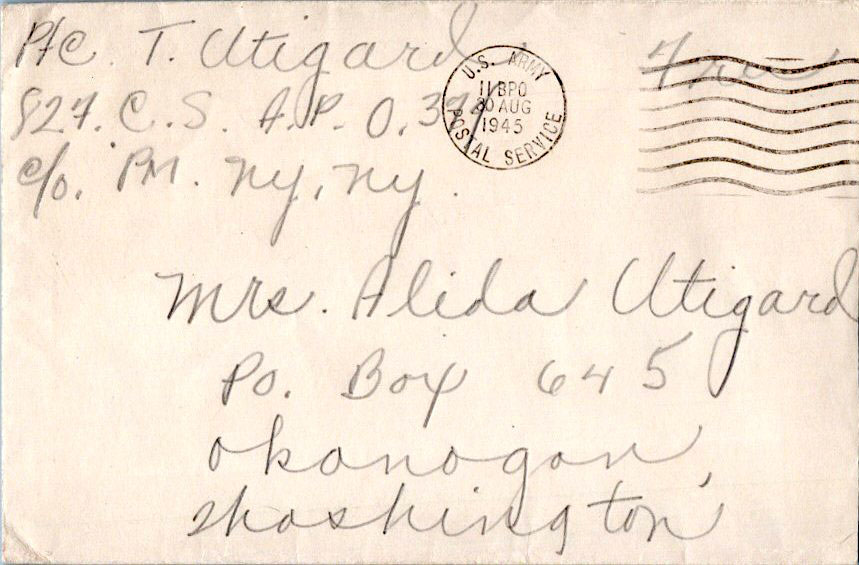 Pfc T. Utigard
827. C. S. A.P.O. 
c/o. PM. NY, NY.
U.S. ARMY
11 BPO
30 AUG
1945
POSTAL SERVICE
Free
Mrs. Alida Utigard
Po. Box 645
Okanogan,
Washington